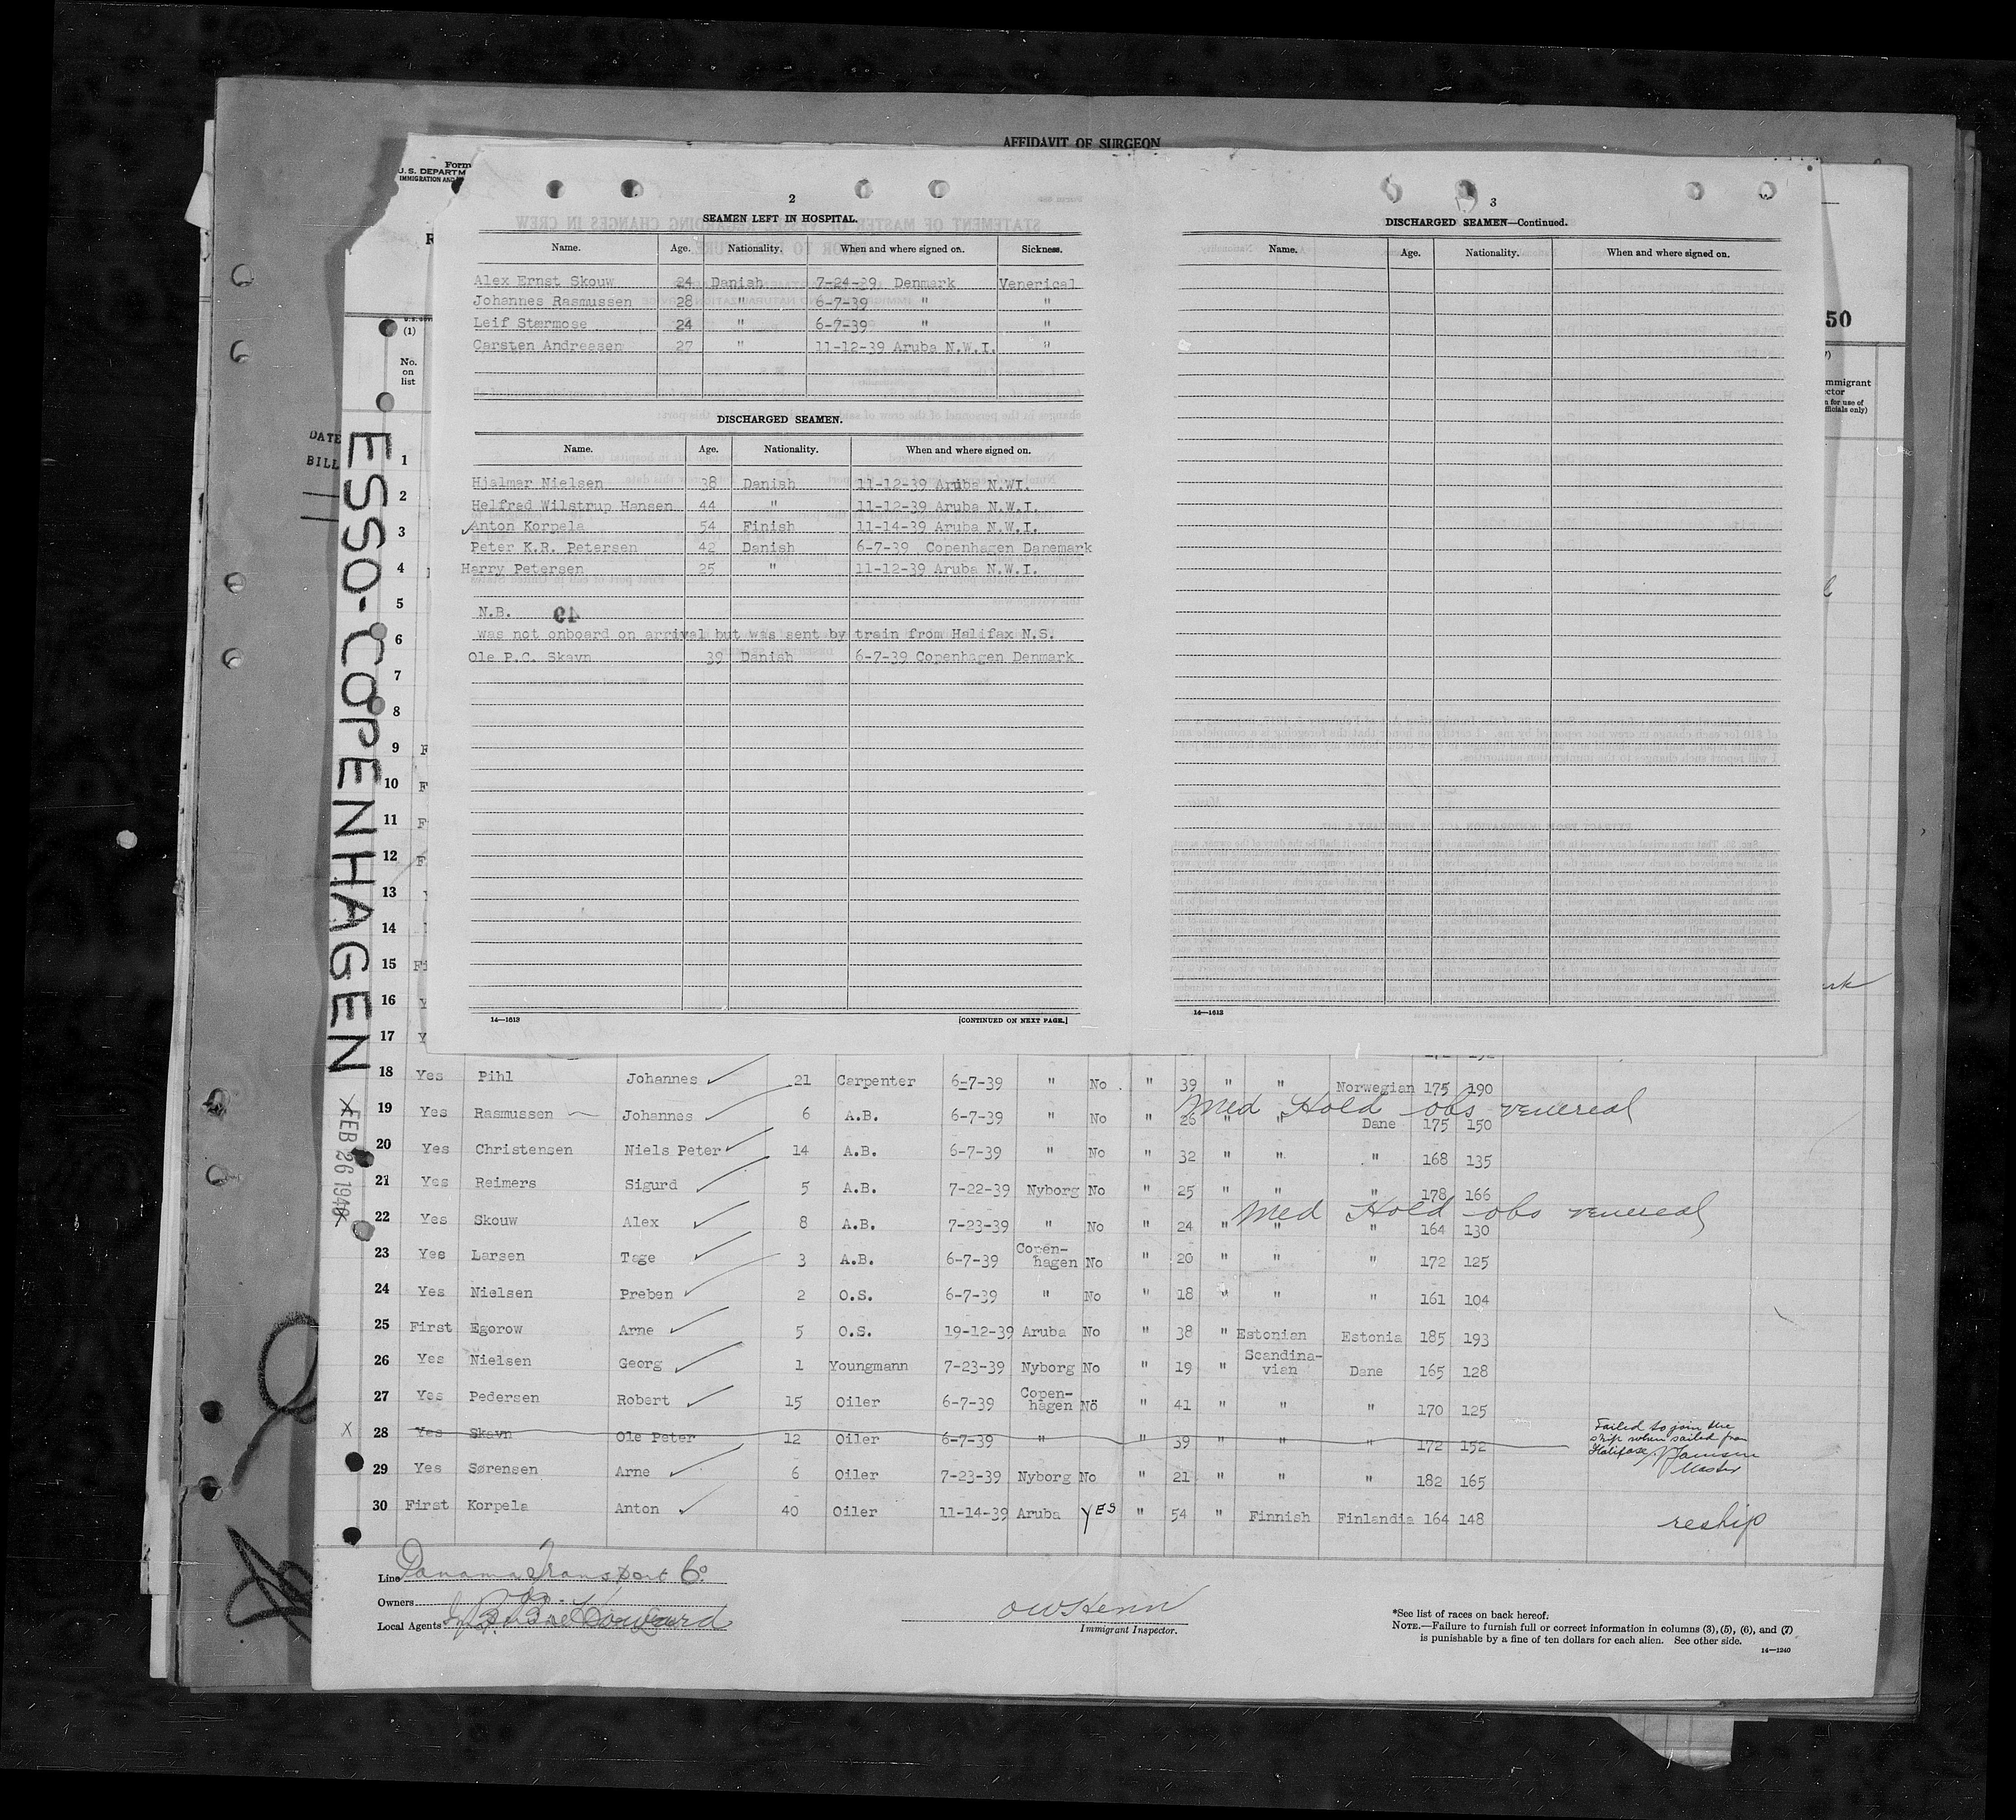 AFFIDAVIT OF SURGEON
Form
U.S. DEPARTM
IMMIGRATION AND
2
SEAMEN LEFT IN HOSPITAL.
Name. Age. Nationality. When and where signed on. Sickness.
Alex Ernst Skouw 24 Danish 7-24-39 Denmark Venerical
Johannes Rasmussen 28 " 6-7-39 " "
Leif Stærmose 24 " 6-7-39 " "
Carsten Andressen 27 " 11-12-39 Aruba N.W.I. "
DISCHARGED SEAMEN.
Name. Age. Nationality. When and where signed on.
Hjalmar Nielsen 38 Danish 11-12-39 Aruba N.WI.
Helfred Wilstrup Hansen 44 " 11-12-39 Aruba N.W.I.
Anton Korpela 54 Finish 11-14-39 Aruba N.W.I.
Peter K.R. Petersen 42 Danish 6-7-39 Copenhagen Danemark
Harry Petersen 25 " 11-12-39 Aruba N.W.I.
N.B.
was not onboard on arrival but was sent by train from Halifax N.S.
Ole P.C. Skavn 39 Danish 6-7-39 Copenhagen Denmark
14—1613 [CONTINUED ON NEXT PAGE.]
3
DISCHARGED SEAMEN—Continued.
Name. Age. Nationality. When and where signed on.
14—1613
50
mmigrant
ctor
n for use of
fficials only)
(1)
No.
on
list
DATE
BILL
ESSO-COPENHAGEN
FEB 26 1940
1
2
3
4
5
6
7
8
9 F
10 F
11 F
12 F
13
14
15 Fi
16 Y
17 Y
18 Yes Pihl Johannes 21 Carpenter 6-7-39 " No " 39 " " Norwegian 175 190
Med Hold obs venereal
19 Yes Rasmussen Johannes 6 A.B. 6-7-39 " No " 26 " " Dane 175 150
20 Yes Christensen Niels Peter 14 A.B. 6-7-39 " No " 32 " " " 168 135
21 Yes Reimers Sigurd 5 A.B. 7-22-39 Nyborg No " 25 " " " 178 166
Med Hold obs venereal
22 Yes Skouw Alex 8 A.B. 7-23-39 " No " 24 " " " 164 130
23 Yes Larsen Tage 3 A.B. 6-7-39 Copen-
hagen No " 20 " " " 172 125
24 Yes Nielsen Preben 2 O.S. 6-7-39 " No " 18 " " " 161 104
25 First Egorow Arne 5 O.S. 19-12-39 Aruba No " 38 " Estonian Estonia 185 193
26 Yes Nielsen Georg 1 Youngmann 7-23-39 Nyborg No " 19 " Scandina-
vian Dane 165 128
27 Yes Pedersen Robert 15 Oiler 6-7-39 Copen-
hagen Nö " 41 " " " 170 125
X 28 Yes Skavn Ole Peter 12 Oiler 6-7-39 " " 39 " " " 172 152
Failed to join the
ship when sailed from
Halifax
Master
29 Yes Sørensen Arne 6 Oiler 7-23-39 Nyborg No " 21 " " " 182 165
30 First Korpela Anton 40 Oiler 11-14-39 Aruba YES " 54 " Finnish Finlandia 164 148 reship
Line Panama Transport Co.
Owners
Local Agents
Immigrant Inspector.
*See list of races on back hereof.
NOTE.—Failure to furnish full or correct information in columns (3), (5), (6), and (7)
is punishable by a fine of ten dollars for each alien. See other side.
14—1240